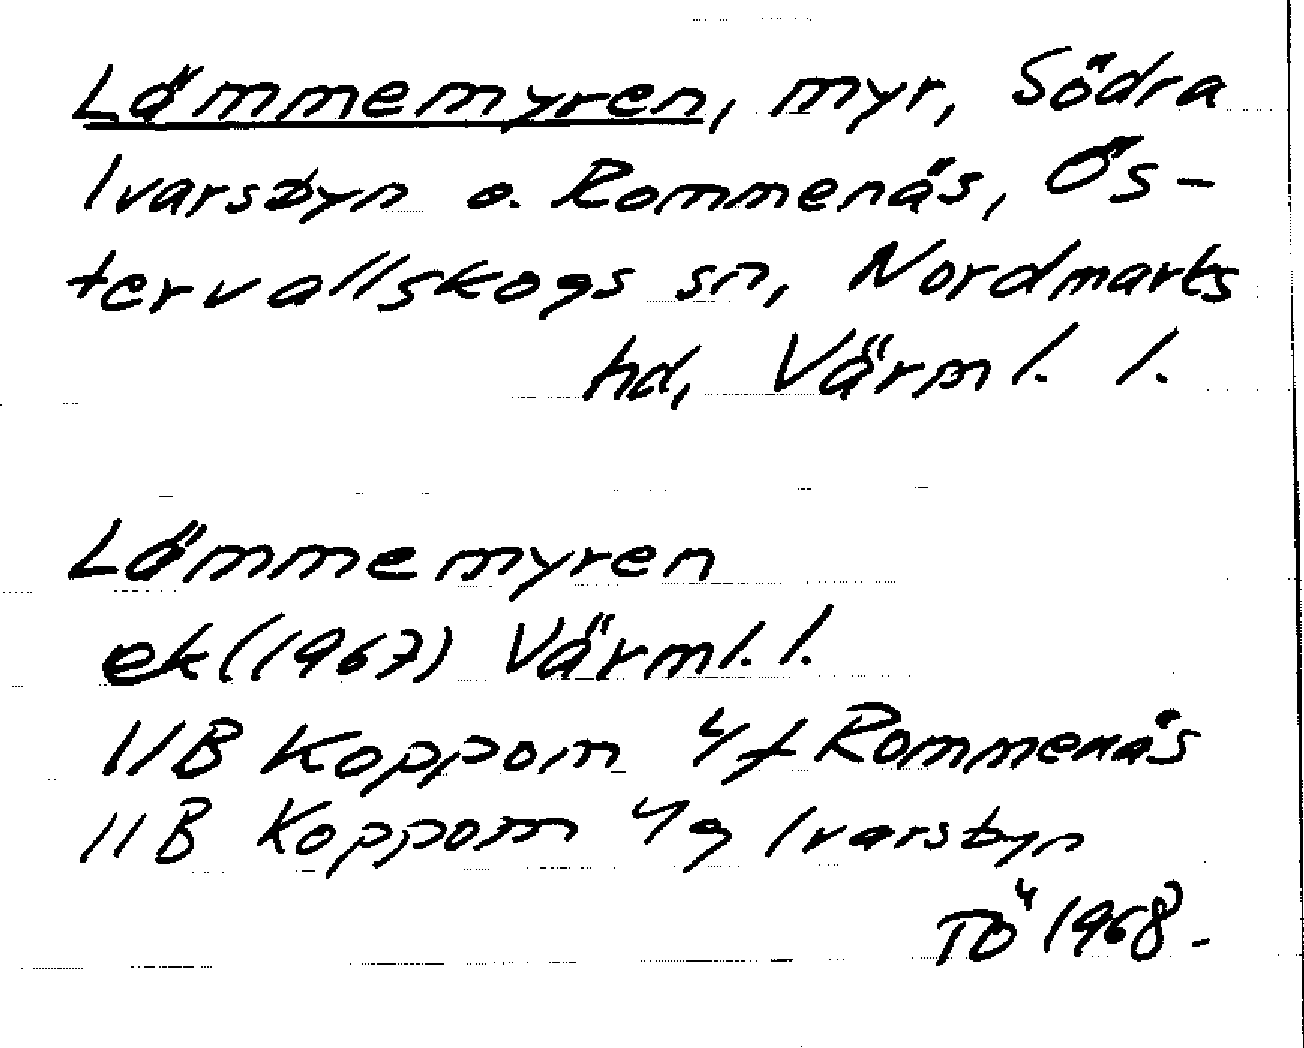 Lämmemyren, myr, Södra
Ivarsbyn o. Rommenäs, Ös-
tervallskogs sn, Nordmarks
hd, Värml. l.
Lämmemyren
ek (1967) Värml. l.
11B Koppom 4f Rommenäs
11B Koppom 4g Ivarsbyn
TÖ 1968.